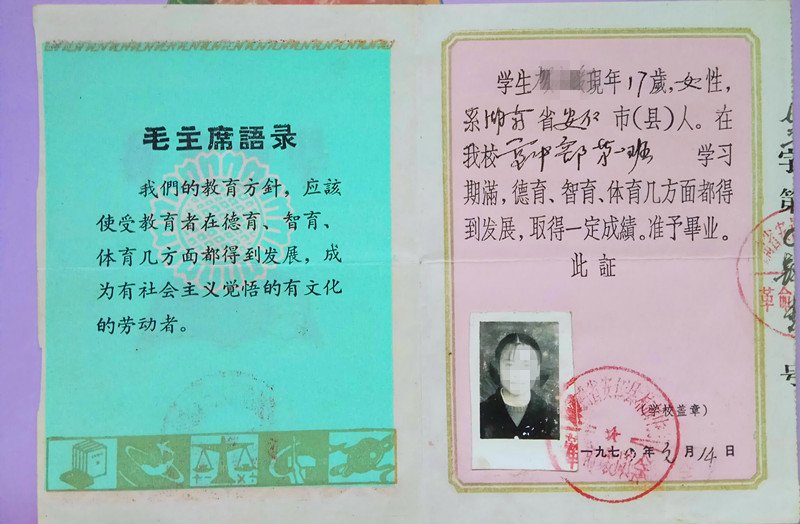 毛主席語录
我們的教育方針，应該
使受教育者在德育、智育、
体育几方面都得到发展，成
为有社会主义觉悟的有文化
的劳动者。
学生 現年17歲，女性，
系湖南省安仁市(县)人。在
我校高中部第 班 学习
期滿，德育、智育、体育几方面都得
到发展，取得一定成績。准予畢业。
此証
(学校盖章)
一九七 年 月14日
字第
号
革命